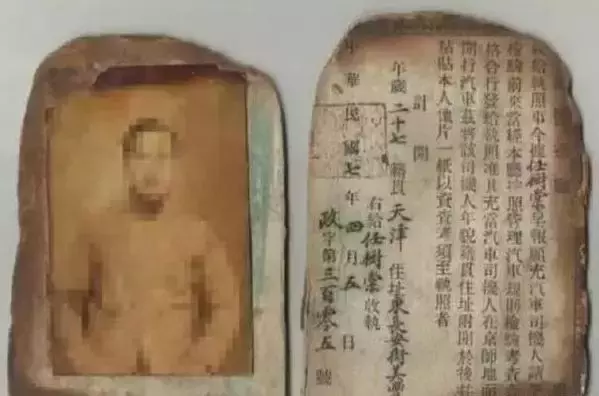 發給執照事今據任樹棠呈報願充汽車司機人請予
檢驗前來當經本廳按照管理汽車規則檢驗考查
格合行發給執照准其充當汽車司機人在京師地面
開行汽車茲將該司機人年貌籍貫住址附開於後並
黏貼本人像片一紙以資查考須至執照者
計開
年歲二十七 籍貫天津 住址東長安街美
右給任樹棠收執
中華民國七年四月五日
政字第三百零五號